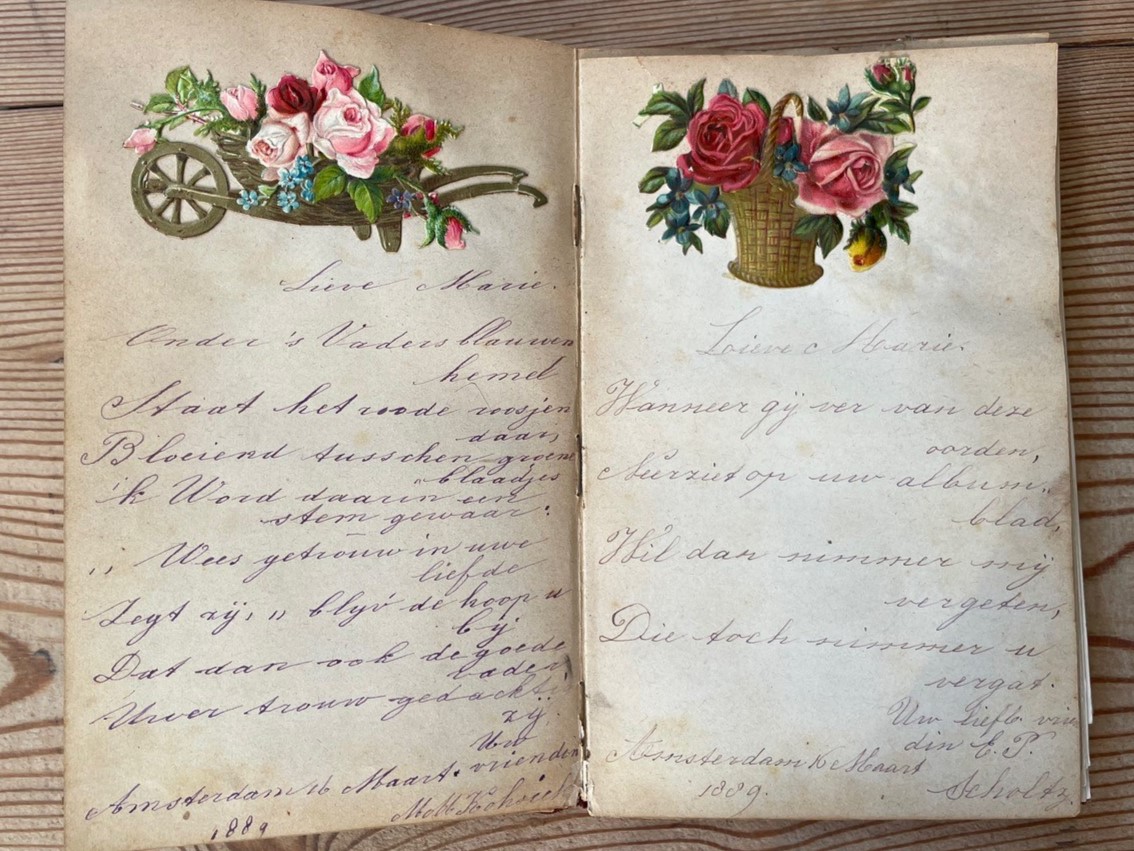 Lieve Marie.
Onder 's Vaders blauwen
hemel
Staat het roode roosjen
daar,
Bloeiend tusschen groene
blaadjes
'k Word daarin een
stem gewaar:
„ Wees getrouw in uwe
liefde
Zegt zij, „ blijv' de hoop u
bij
Dat dan ook de goede
vader
Uwer trouw gedacht
zij.
Uw
vriendin
Amsterdam 16 Maart.
1889
M. M.
Lieve Marie.
Wanneer gij ver van deze
oorden,
Neerziet op uw album.
blad,
Wil dan nimmer mij
vergeten,
Die toch nimmer u
vergat.
Uw liefh. vrin
din E. P.
Scholtz.
Amsterdam 16 Maart
1889.